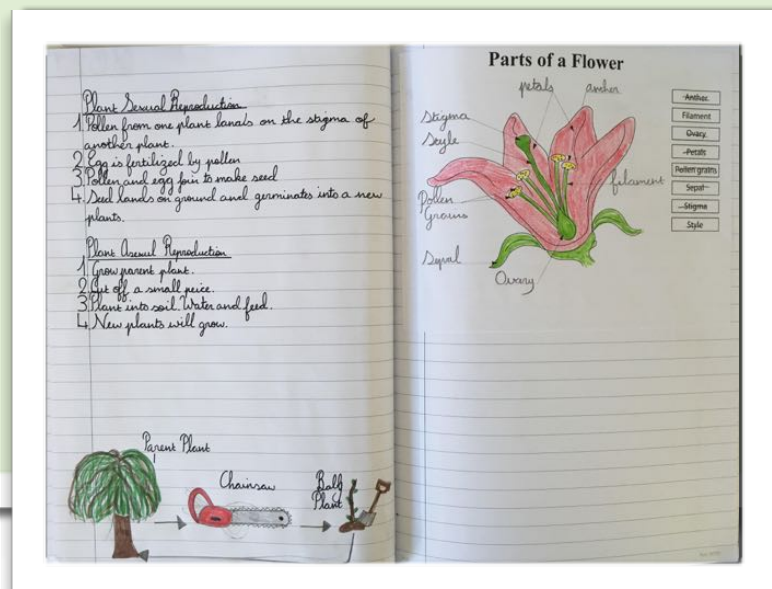 Plant Sexual Reproduction
1. Pollen from one plant lands on the stigma of
another plant.
2. Egg is fertilized by pollen
3. Pollen and egg join to make seed
4. Seed lands on ground and germinates into a new
plants.
Plant Asexual Reproduction
1. Grow parent plant.
2. Cut off a small peice.
3. Plant into soil. Water and feed.
4. New plants will grow.
Parent Plant
Chainsaw
Baby
Plant
Parts of a Flower
petals
anther
Stigma
Style
filament
Pollen
Grains
Sepal
Ovary
Anther
Filament
Ovary
Petals
Pollen grains
Sepal
Stigma
Style